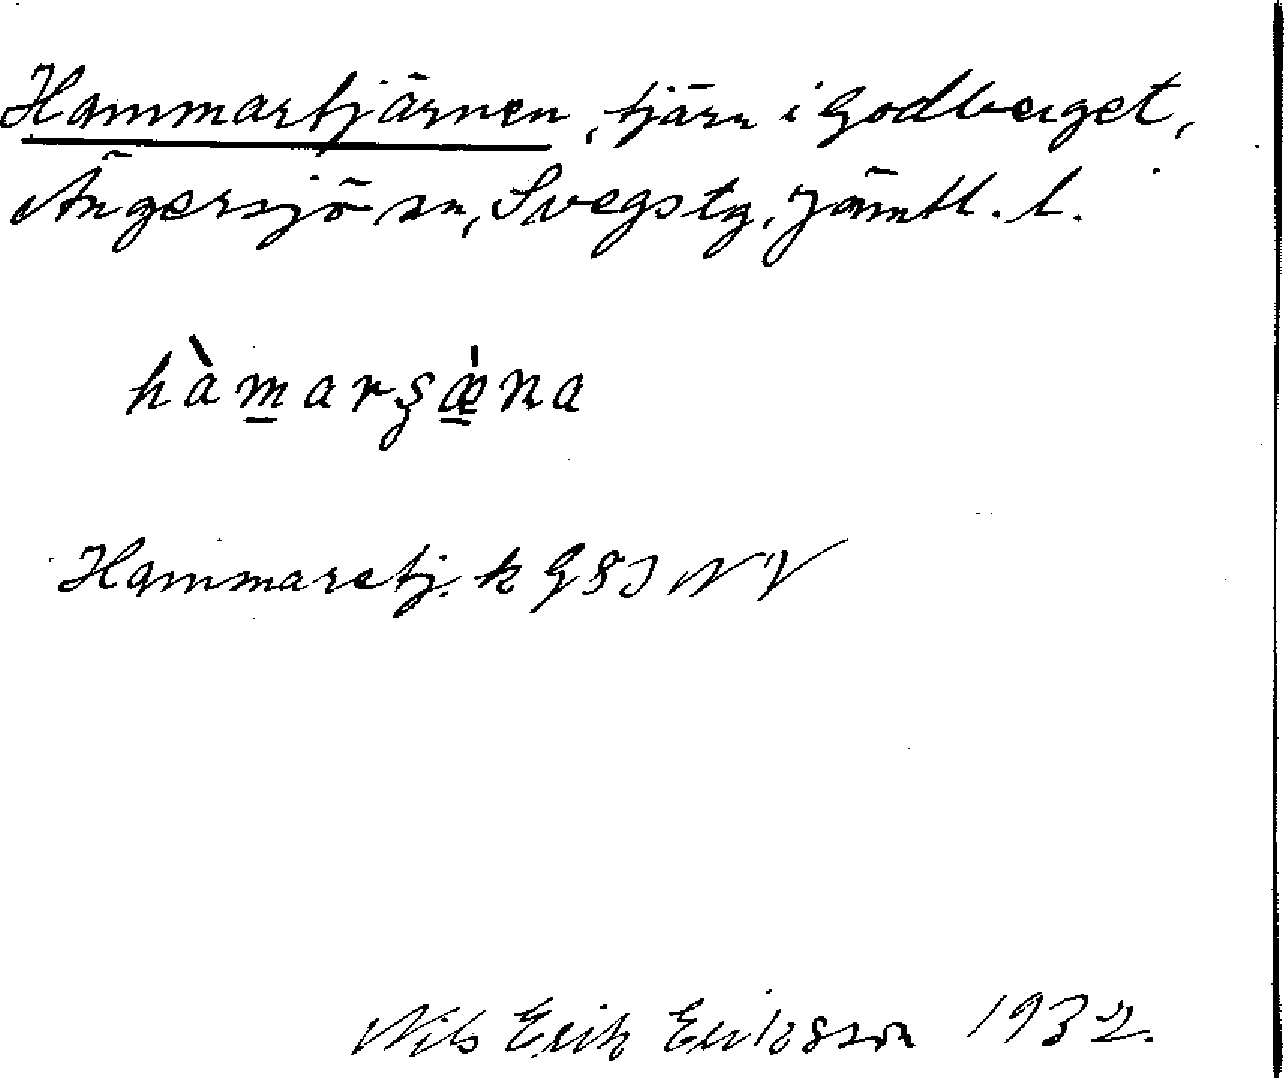 Hammartjärnen, tjärn i Godberget,
Ängersjö sn, Svegs tg, Jämtl. l.
hàmarʂæ̀na
Hammaretj. k GSJ NV
Nils Erik Eriksson 1932.